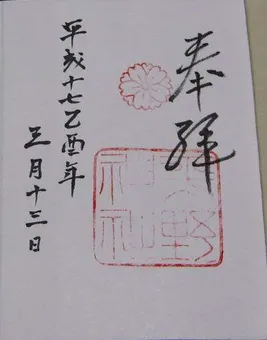 奉拝
野神社
平成十七乙酉年
三月十三日